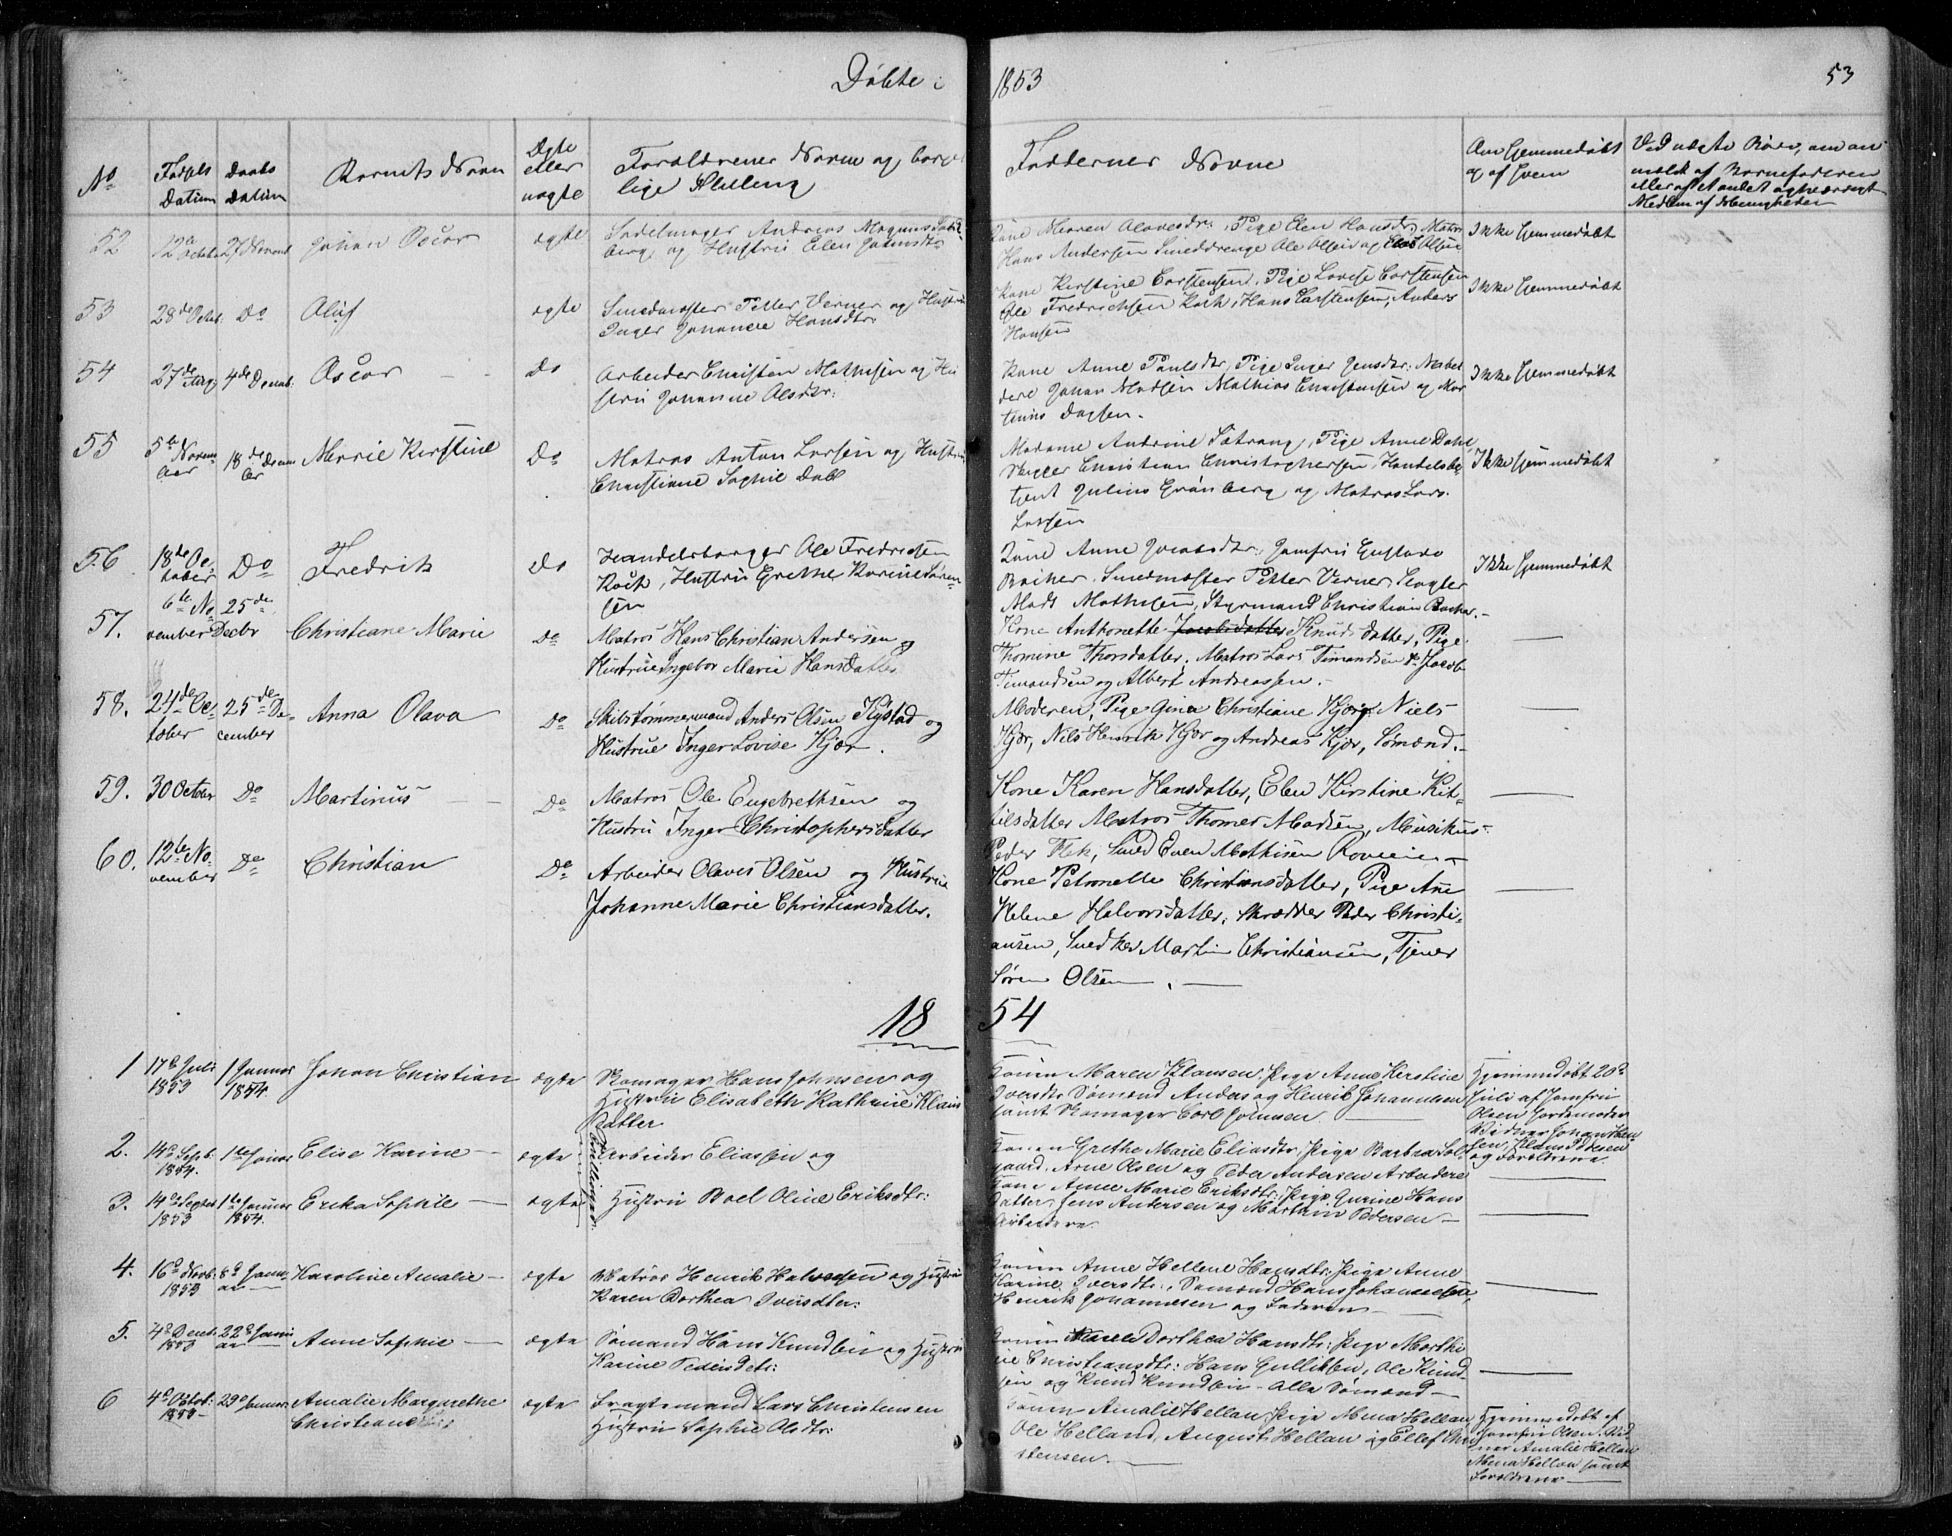 Döbte i 1853
53
No
Födsels Datum
Daabs Datum
Barnets Navn
Ægte eller uægte
Forældrenes Navne og borgerlige Stilling
Faddernes Navne
Om hjemmedöbt og af hvem
Ved uægte Börn, om anmeldt af Barnefaderen eller af et andet agtværdigt Medlem af Menigheden
52
12te Octob
27 Novemb
Johan Oscar
ægte
Sadelmager Andreas Magnus
berg og Hustru Elen Johnsdtr
Kone Maren Olavesdtr, Pige Elen Hansdtr, Matros
Hans Andersen Smeddrenge Ole Olsen og Olsen
Ikke hjemmedöbt
53
28de Octob.
Do
Oluf
ægte
Smedmester Petter Verner og Hustru
Inger Johanne Hansdtr
Kone Kirstine Carstensen, Pige Lovise Carstensen
Ole Fredrichsen Koch, Hans Carstensen, Anders
Hansen
Ikke hjemmedöbt
54
27de Aug
4de Decemb.
Oscar
Do
Arbeider Christen Mathisen og Hu
stru Johanne Olsdtr:
Kone Anne Paulsdtr, Pige Inger Jensdtr: Arbei
dere Johan Madsen Mathias Christensen og Mar
tinus Dagsen.
Ikke hjemmedöbt
55
5te Novem
ber
18de Decem
ber
Marie Kirstine
Do
Matros Anton Larsen og Hustru
Christiane Sophie Dahl
Madame Andrine Sötrang, Pige Anne Dahl,
Christian Christophersen, Handelsbe
tjent Julius Grönberg og Matros Lars
Larsen
Ikke hjemmedöbt
56
18de Oc
tober
Do
Fredrik
Do
Handelsborger Ole Fredrichsen
Koch, Hustru Grethe Karine Sören-
sen
Kone Anne Jacobsdtr, Jomfru Gustava
Bacher, Smedmester Petter Verner, Slagter
Mads Mathisen, Styrmand Christian Bacher.-
Ikke hjemmedöbt
57.
6te No
vember
25de
Decbr
Christiane Marie
Do
Matros Hans Christian Andersen og
Hustrue Ingebor Marie Hansdatter
Kone Anthonette Jacobsdatter Knudsdatter, Pige
Thomine Thorsdatter, Matros Lars Timandsen Do Jacob
Timandsen og Albert Andreassen.-
58.
24de Oc
tober
25de De-
cember
Anna Olava
Do
Skibstömmermand Anders Olsen Kystad og
Hustrue Inger Lovise Kjær.
Moderen, Pige Gina Christiane Kjær, Niels
Kjær, Nils Henrik Kjær og Andreas Kjær, Sömænd.-
59.
30 October
Do
Martinus
Do
Matros Ole Engebrethsen og
Hustru Inger Christophersdatter
Kone Karen Hansdatter, Elen Kirstine Kit-
tilsdatter Matros Thomes Madsen, Musikus
Peder Flek, Smed Even Mathisen
60.
12te No
vember
Do
Christian
Do
Arbeider Olaves Olsen og Hustrue
Johanne Marie Christiansdatter.
Kone Petronelle Christiansdatter, Pige Ane
Helene Halvorsdatter, Skrædder Peder Christi-
ansen, Snedker Martin Christiansen, Tjener
Sören Olsen.
1854
1
17de Juli
1853
1 Januar
1854.
Johan Christian
ægte
Skomager Hans Johnsen og
Hustru Elisabeth Kathrine Klaus
Datter
Konen Maren Klausen, Pige Anne Kirstine
Iversdtr Sömænd Anders og Henrik Johannesen
samt Skomager Carl Johnsen
Hjemmedöbt 20de
Juli af Jomfru
Olsen Jordemoder
Vidner Johan Han
sen, Klaus Pedersen
og Forældrene
2.
14de Septb
1854.
1ste Januar
Elise Karine
ægte
Tvillinger
Arbeider Eliassen og
Konen Grethe Marie Eliasdtr, Pige Barbra Sol
gaard, Arne Olsen og Peder Andersen Arbeidere
3.
14de Septbr
1853
1ste Januar
1854.
Erika Sophie
ægte
Hustru Boel Oline Eriksdtr:
Kone Anne Marie Eriksdtr: Pige Gurine Hans
Datter, Jens Andersen og Martin Pedersen
Arbeidere
4.
16de Novb.
1853
8de Janu-
ar
Karoline Amalie
ægte
Matros Henrik Halvorsen og Hustru
Karen Dorthea Iversdtr:
Konen Anne Hellene Hansdtr: Pige Anne
Karine Iversdtr:, Sömænd Hans Johannesen,
Henrik Johannesen og Faderen
5.
4de Decbr
1853
22de Janu
ar
Anne Sophie
ægte
Sömand Hans Knudsen og Hustru
Karine Pedersdtr:
Konen Maren Dorthea Hansdtr: Pige Marthi
ne Christiansdtr: Hans Gulliksen, Ole Knud
sen og Knud Knudsen - Alle Sömænd
6
4de Octob:
1853
29de Januar
Amalie Margrethe
Christiane
ægte
Fragtemand Lars Christensen
Hustru Sophie Olsdtr:
Konen Amalie Hellan, Pige Mena Hellan
Ole Helland, August Hellan og Ellef Chri
stensen.
Hjemmedöbt af
Jomfru Olsen. Vid
ner Amalie Hellan
Mena Hellan samt
Forældrene